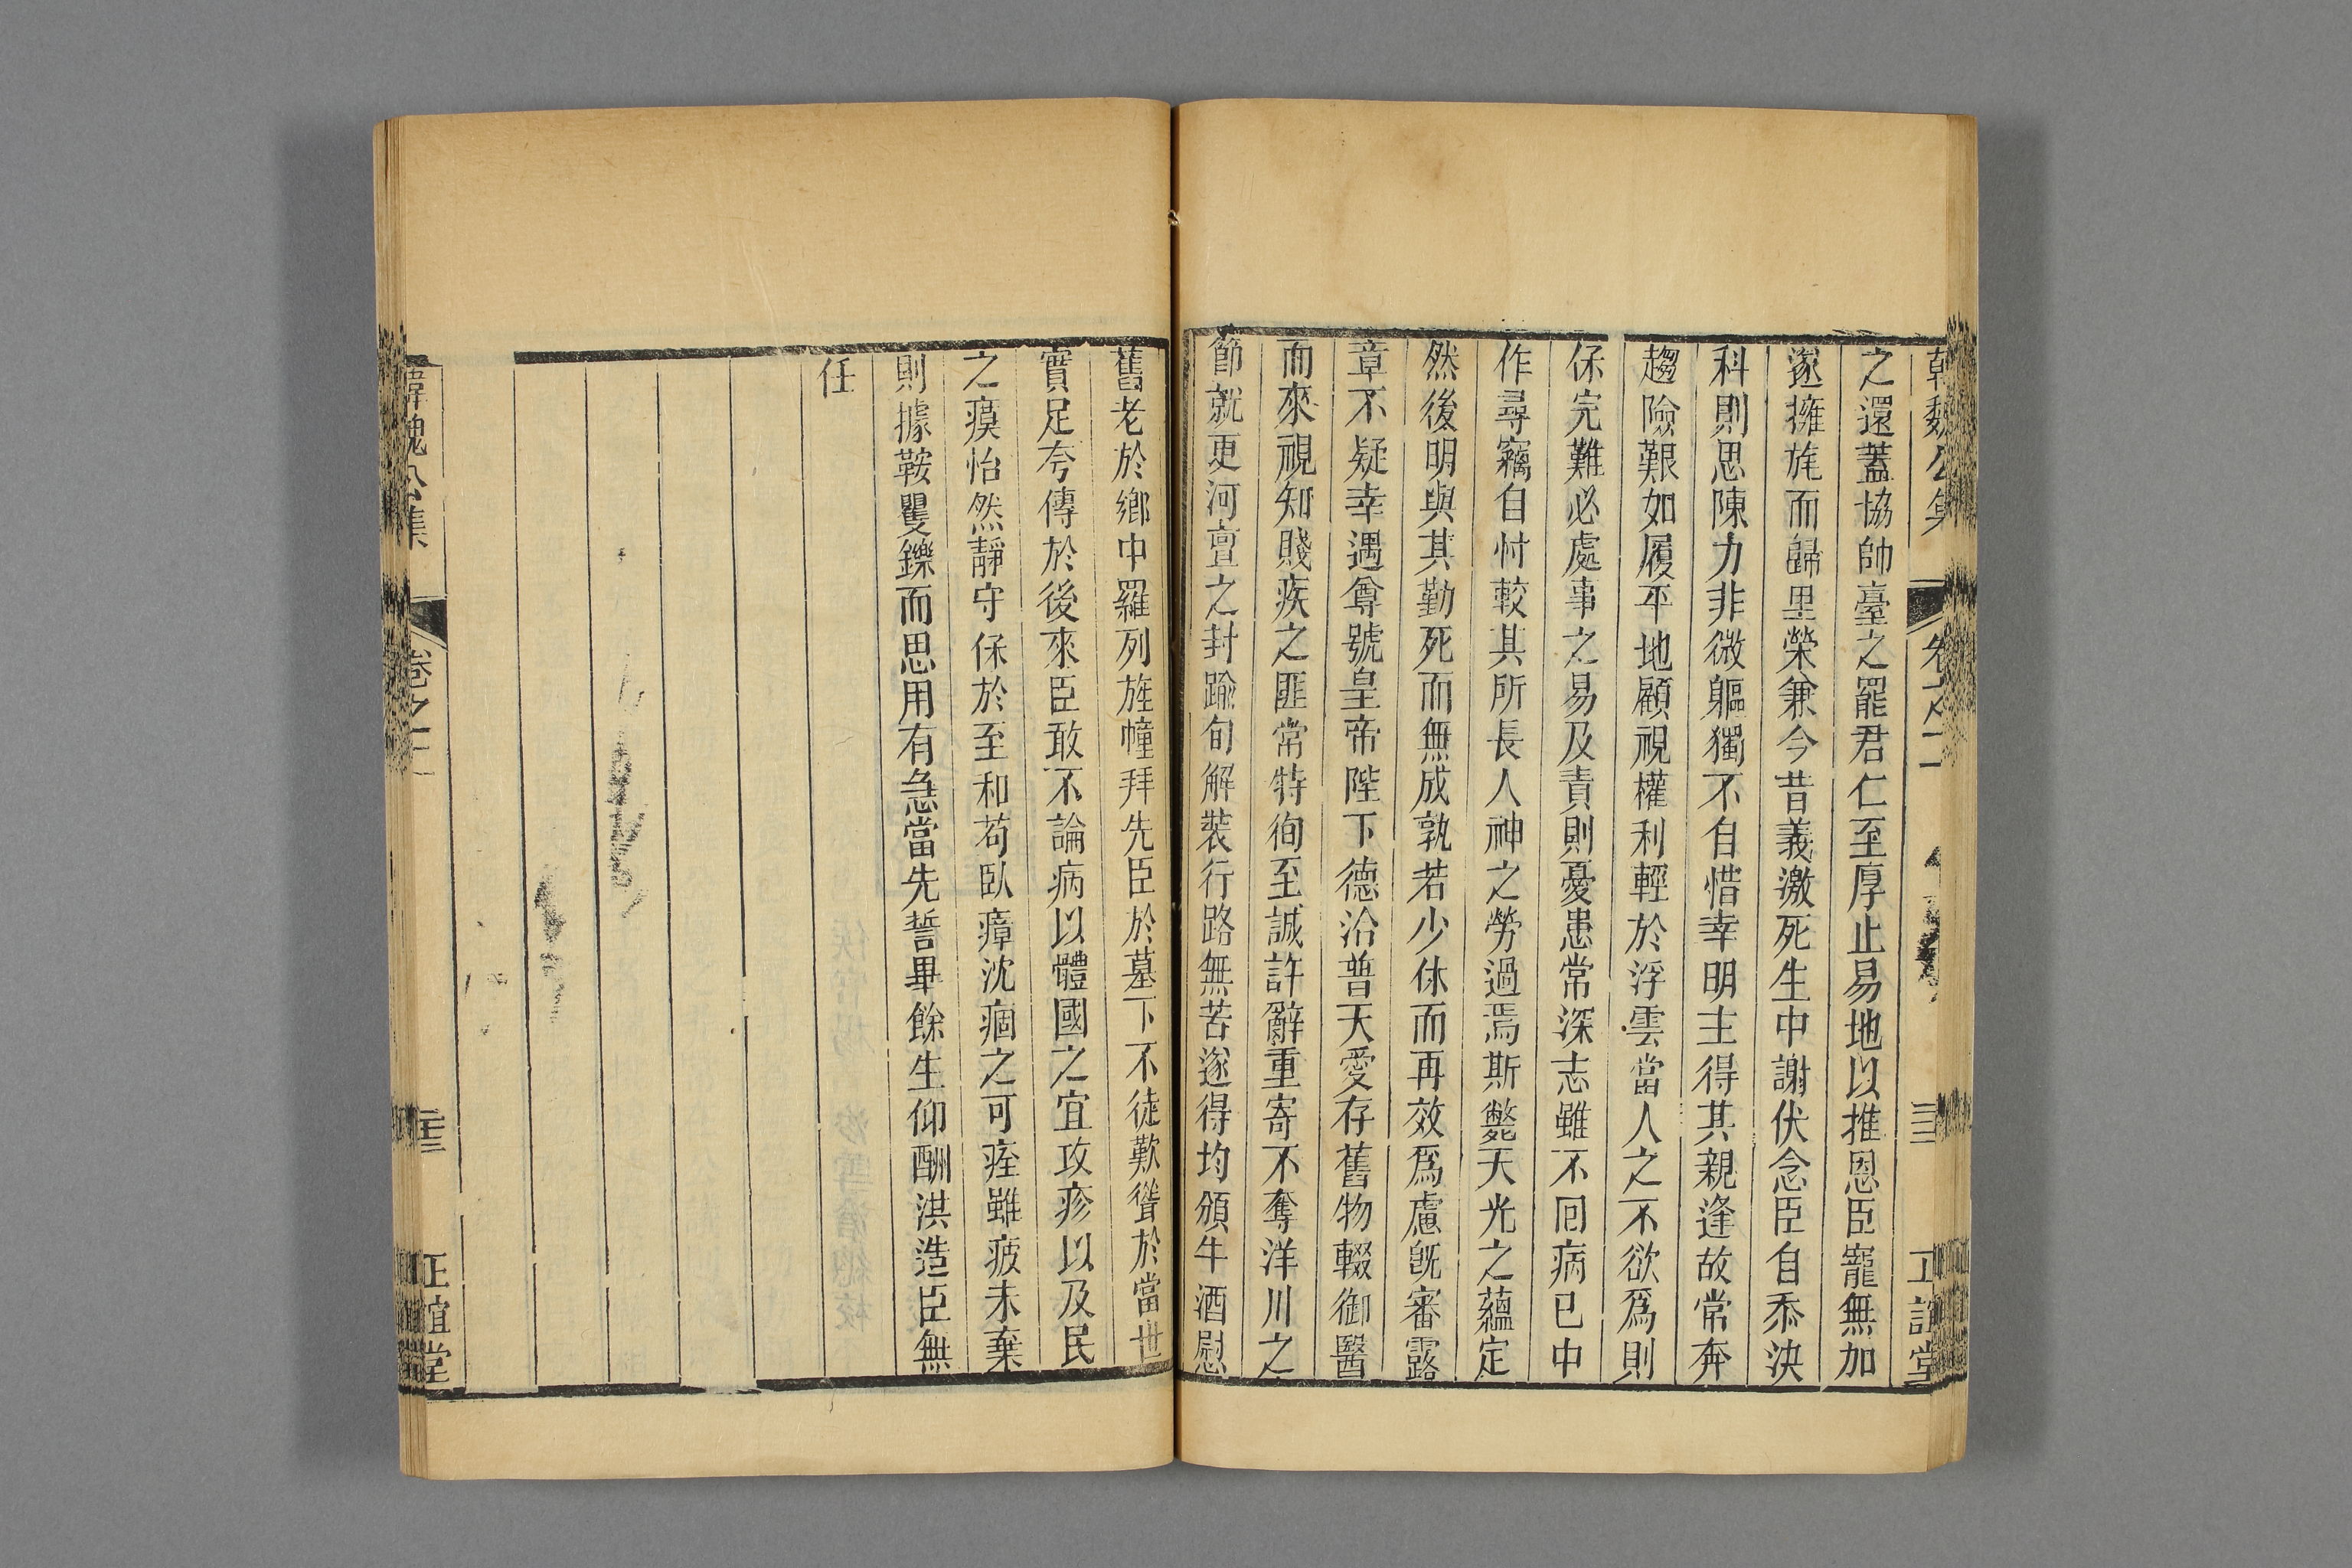 韓魏公集 卷之二 三 正誼堂
之還蓋協帥臺之罷君仁至厚止易地以推恩臣寵無加
遂擁旄而歸里榮兼今昔義激死生中謝伏念臣自忝決
科則思陳力非微軀獨不自惜幸明主得其親逢故常奔
趨險艱如履平地顧視權利輕於浮雲當人之不欲爲則
保完難必處事之易及責則憂患常深志雖不回病已中
作尋竊自忖較其所長人神之勞過焉斯斃天光之蘊定
然後明與其勤死而無成孰若少休而再效爲慮旣審露
章不疑幸遇尊號皇帝陛下德洽普天愛存舊物輟御醫
而來視知賤疾之匪常特徇至誠許辭重寄不奪洋川之
節就更河亶之封踰旬解裝行路無苦遂得均頒牛酒慰
舊老於鄉中羅列旌幢拜先臣於墓下不徒歎聳於當世
實足夸傳於後來臣敢不論病以體國之宜攻疹以及民
之瘼怡然靜守保於至和苟臥瘴沈痼之可痊雖疲未棄
則據鞍矍鑠而思用有急當先誓畢餘生仰酬洪造臣無
任
韓魏公集 卷之二 正誼堂